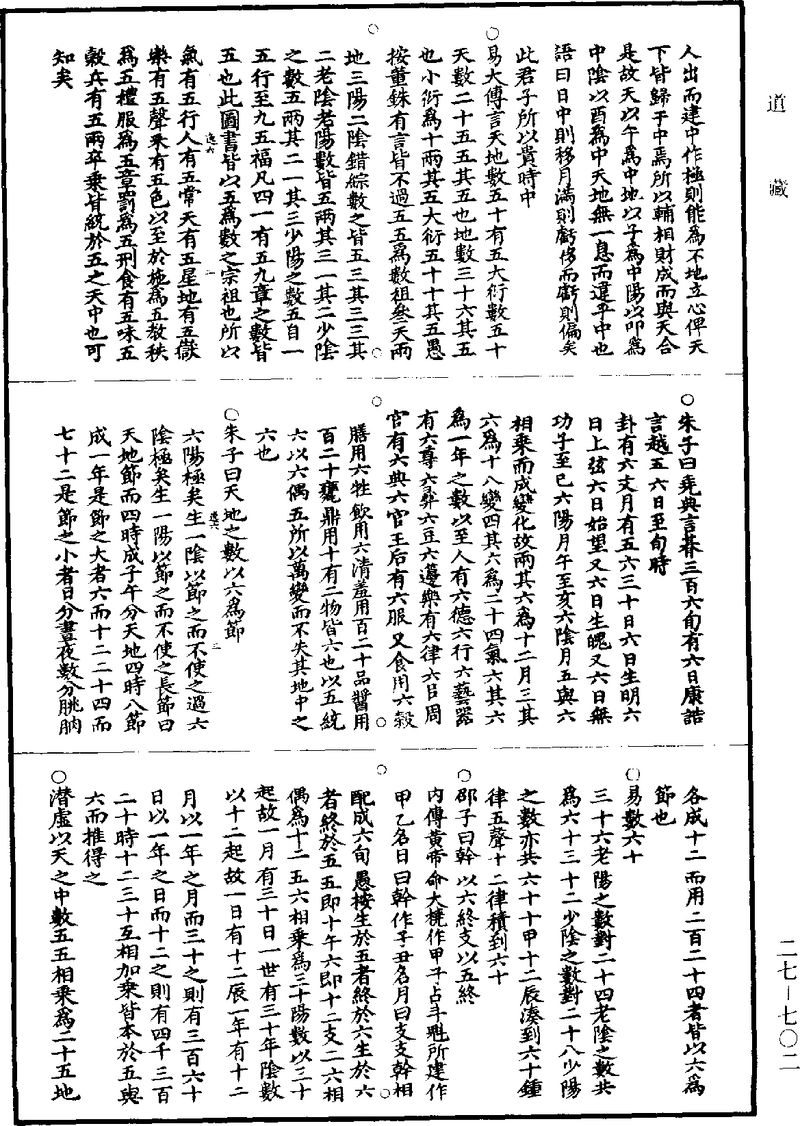 道藏
人出而建中作極則能為不地立心俾天
下皆歸于中焉所以輔相財成而與天合
是故天以午為中地以子為中陽以卯為
中陰以酉為中天地無一息而違乎中也
語曰日中則移月滿則虧移而虧則偏矣
此君子所以貴時中
○易大傳言天地數五十有五大衍數五十
天數二十五五其五也地數三十六其五
也小衍為十兩其五大衍五十十其五愚
按董銖有言皆不過五五為數祖叁天兩
地三陽二陰錯綜數之皆五三其三三其
二老陰老陽數皆五兩其三一其二少陰
之數五兩其二一其三少陽之數五自一
五行至九五福凡四一有五九章之數皆
五也此圖書皆以五為數之宗祖也所以
氣有五行人有五常天有五星地有五嶽
樂有五聲釆有五色以至於施為五教秩
為五禮服為五章罰為五刑食有五味五
穀兵有五兩卒乘皆統於五之天中也可
知矣
○朱子曰堯典言朞三百六旬有六日康誥
言越五六日至旬時
卦有六爻月有五六三十日六日生明六
日上弦六日始望又六日生魄又六日無
功子至巳六陽月午至亥六陰月五與六
相乘而成變化故兩其六為十二月三其
六為十八變四其六為二十四氣六其六
為一年之數以至人有六德六行六藝器
有六尊六彞六豆六籩樂有六律六呂周
官有六典六官王后有六服又食用六穀
膳用六牲飲用六清羞用百二十品醬用
百二十甕鼎用十有二物皆六也以五統
六以六偶五所以萬變而不失其地中之
六也
○朱子曰天地之數以六為節
六陽極矣生一陰以節之而不使之過六
陰極矣生一陽以節之而不使之長節曰
天地節而四時成子午分天地四時八節
成一年是節之大者六而十二二十四而
七十二是節之小者日分晝夜數分朓朒
各成十二而用二百二十四者皆以六為
節也
○易數六十
三十六老陽之數對二十四老陰之數共
為六十三十二少陰之數對二十八少陽
之數亦共六十十甲十二辰湊到六十鍾
律五聲十二律積到六十
○邵子曰幹以六終支以五終
內傳黃帝命大橈作甲子占斗魁所建作
甲乙名日曰幹作子丑名月曰支支幹相
配成六旬愚按生於五者終於六生於六
者終於五五即十午六即十二支二六相
偶為十二五六相乘為三十陽數以三十
起故一月有三十日一世有三十年陰數
以十二起故一日有十二辰一年有十二
月以一年之月而三十之則有三百六十
日以一年之日而十二之則有四千三百
二十時十二三十互相加乘皆本於五與
六而推得之
○潜虛以天之中數五五相乘為二十五地
二七—七〇二